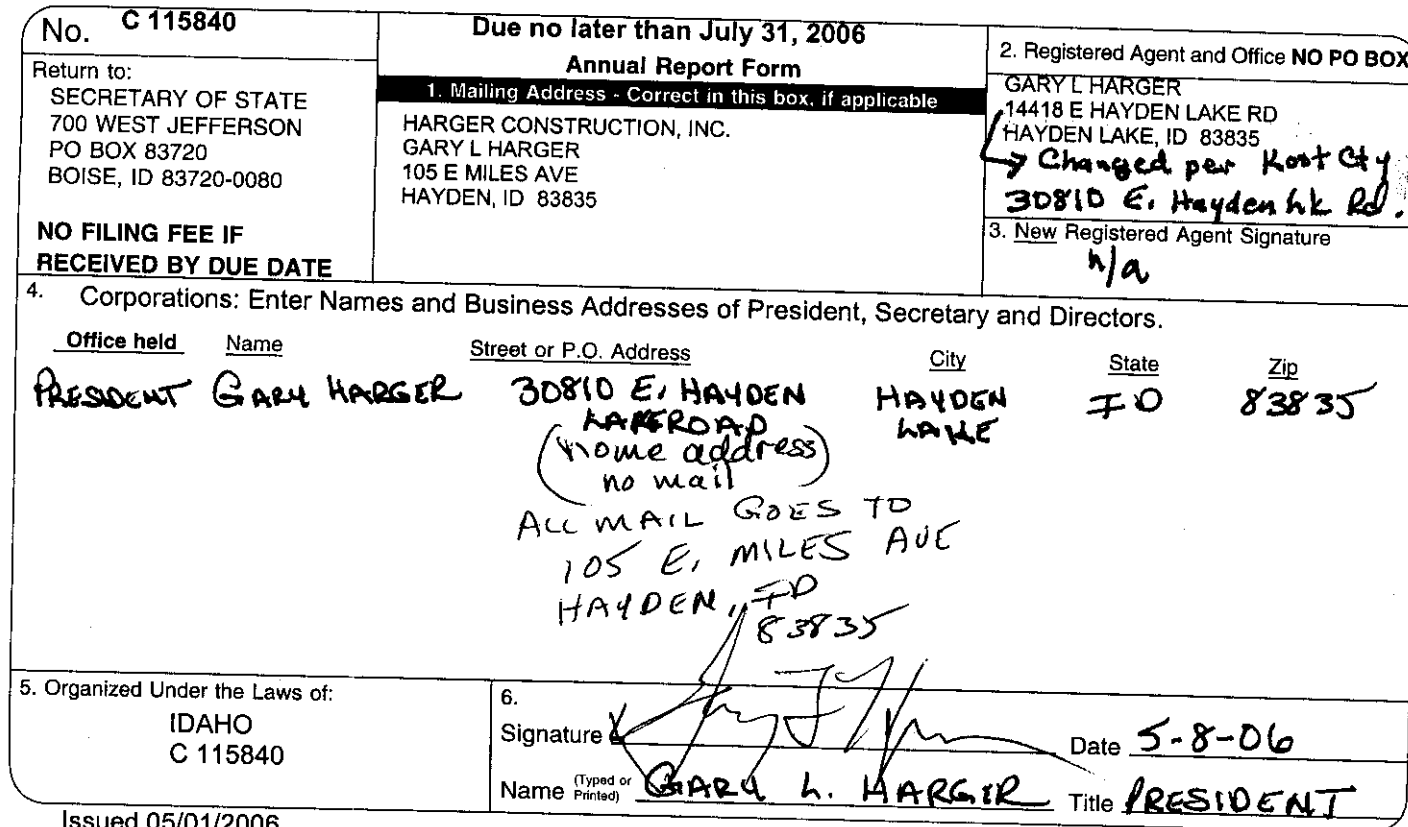 No. C 115840
Return to:
SECRETARY OF STATE
700 WEST JEFFERSON
PO BOX 83720
BOISE, ID 83720-0080
NO FILING FEE IF
RECEIVED BY DUE DATE
Due no later than July 31, 2006
Annual Report Form
1. Mailing Address - Correct in this box, if applicable
HARGER CONSTRUCTION, INC.
GARY L HARGER
105 E MILES AVE
HAYDEN, ID 83835
2. Registered Agent and Office NO PO BOX
GARY L HARGER
14418 E HAYDEN LAKE RD
HAYDEN LAKE, ID 83835
Changed per Koot Cty
30810 E. Hayden Lk Rd.
3. New Registered Agent Signature
n/a
4. Corporations: Enter Names and Business Addresses of President, Secretary and Directors.
Office held Name Street or P.O. Address City State Zip
PRESIDENT GARY HARGER 30810 E. HAYDEN HAYDEN ID 83835
LAKE ROAD LAKE
(home address)
no mail
ALL MAIL GOES TO
105 E. MILES AVE
HAYDEN, ID
83835
5. Organized Under the Laws of:
IDAHO
C 115840
6.
Signature X Date 5-8-06
Name (Typed or Printed) GARY L. HARGER Title PRESIDENT
Issued 05/01/2006